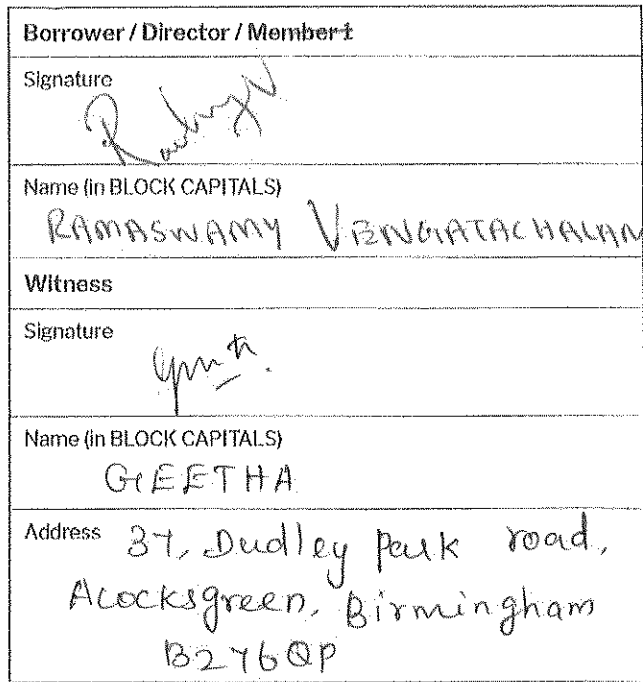 Borrower / Director / Member‡
Signature
Name (in BLOCK CAPITALS)
RAMASWAMY VENGATACHALAM
Witness
Signature
Name (in BLOCK CAPITALS)
GEETHA
Address 37, Dudley park road,
Acocksgreen, Birmingham
B27 6QP